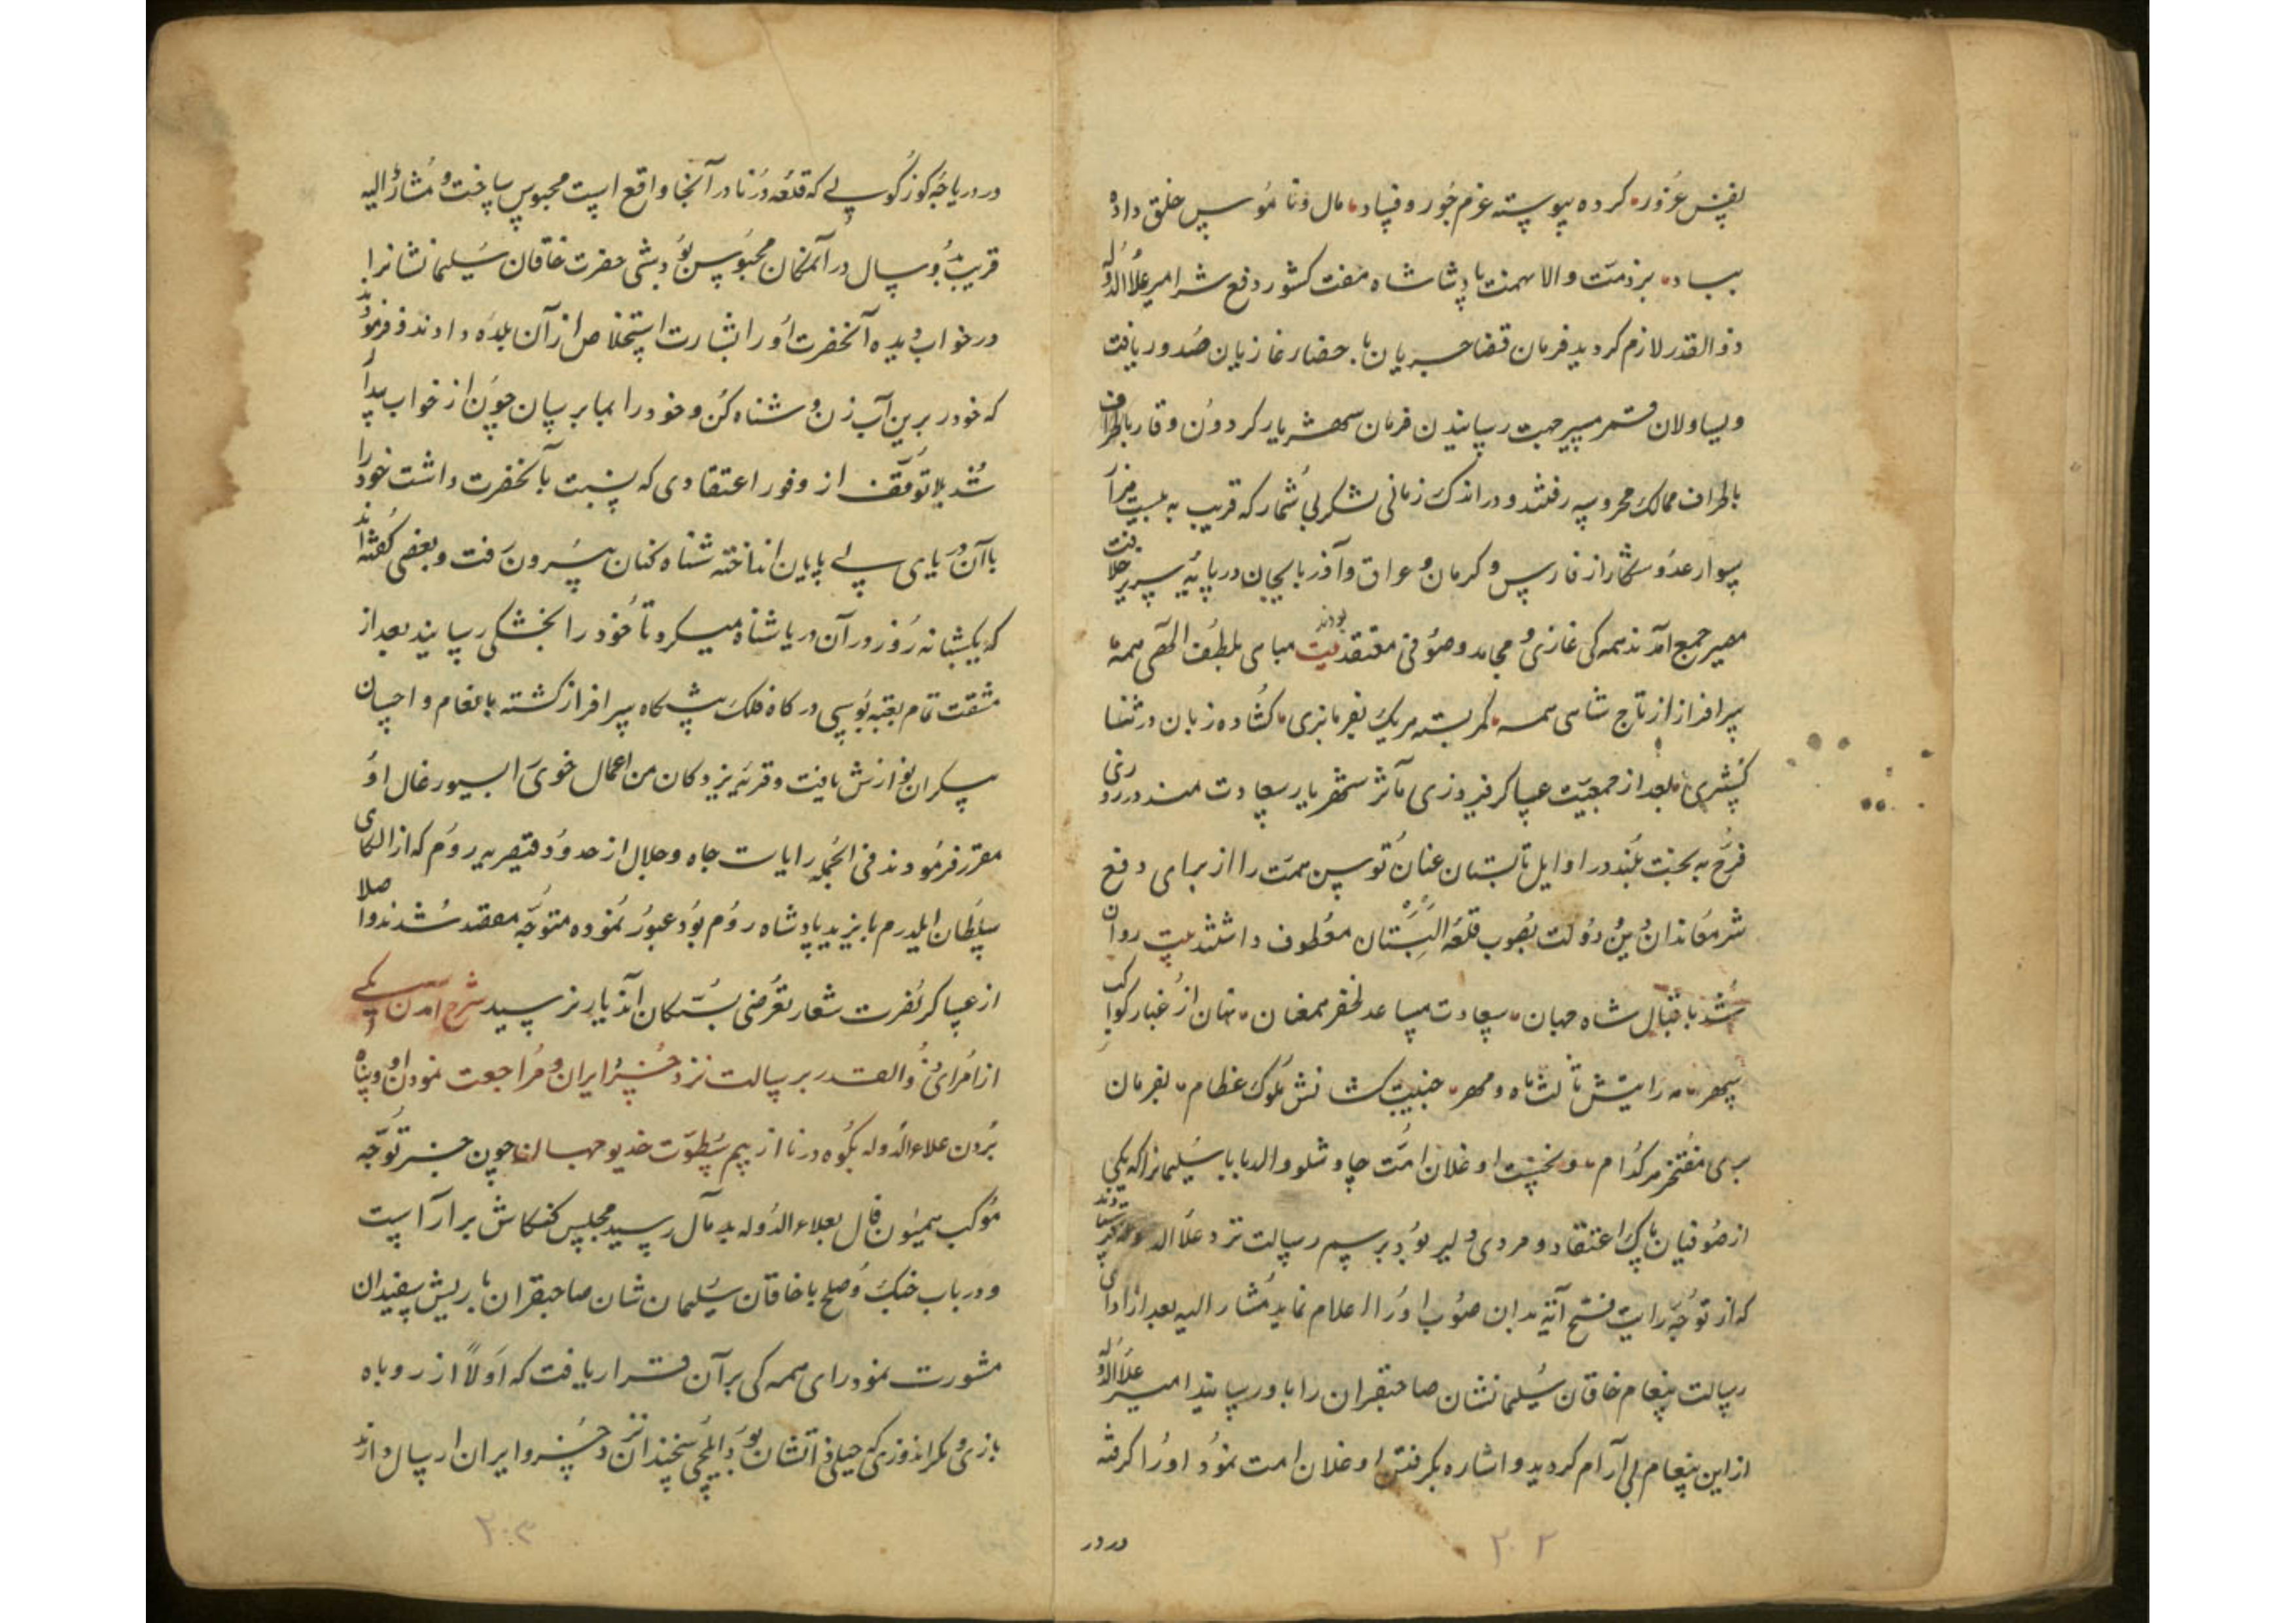 بفتنس غرور کرده پیوسته عزم جور و فساد مال و ناموس خلق داده
بباد بر ذمت والا نهمت پادشاه هفت کشور دفع شر امیر علاءالدوله
ذوالقدر لازم کردید فرمان قضا جریان باحضار غازیان صدور یافت
ویساولان قمر مسیر جهت رسانیدن فرمان شهریار کردون وقار باطراف
باطراف ممالک محروسه رفتند و در اندک زمانی لشکر بی شمار که قریب به بیست هزار
سوار عدو شکار از فارس و کرمان و عراق و آذربایجان در پایه سریر خلافت
مصیر جمع آمدند همه کی غازی و مجاهد و صوفی معتقد بودند بیت مباهی بلطف الهی همه
سرافراز از تاج شاهی همه کمر بسته هریک بفرمانبری کشاده زبان در ثنا
کستری بعد از جمعیت عساکر فیروزی مآثر شهریار سعادتمند در روزی
فرخ به بخت بلند در اوایل تابستان عنان توسن همت را از برای دفع
شر معاندان دین و دولت بصوب قلعه البستان معطوف داشتند بیت روان
شد باقبال شاه جهان سعادت مساعد ظفر همعنان نهان از غبار کواکب
سپهر مه رایتش تالث ماه و مهر جنیبت کشانش ملوک عظام بفرمان
بری مفتخر هر کدام و نخست اوغلان امت چاوشلو والد بابا سلیمان را که یکی
از صوفیان پاک اعتقاد و مردی دلیر بود برسم رسالت نزد علاءالدوله فرستادند
که از توجه رایت فتح آیه بدان صوب او را اعلام نماید مشار الیه بعد از ادای
رسالت پیغام خاقان سلیمانشان صاحبقران را باو رسانید امیر علاءالدوله
از این پیغام بی آرام کردید و اشاره بکرفتن اوغلان امت نمود او را کرفته
در در
۲۰۲
در دریاچه کوزکوسلی که قلعه درنا در آنجا واقع است محبوس ساخت و مشارالیه
قریب بدو سال در آنمکان محبوس بود شبی حضرت خاقان سلیمانشانرا
در خواب دیده آنحضرت او را بشارت استخلاص از آن بلده دادند و فرمودند
که خود را برین آب زن و شناه کن و خود را بما برسان چون از خواب بیدار
شد بلاتوقف از وفور اعتقادی که نسبت بآنحضرت داشت خود را
باآن دریای بی پایان انداخته شناه کنان بیرون رفت و بعضی کفته اند
که یکشبانه روز در آن دریا شناه میکرد تا خود را بخشکی رسانید بعد از
مشقت تمام بعتبه بوسی درکاه فلک پیشکاه سرافراز کشته بانعام و احسان
بیکران نوازش یافت و قریه یزدکان من اعمال خوی را بسیورغال او
مقرر فرمودند فی الجمله رایات جاه و جلال از حدود قیصریه روم که از الکای
سلطان ایلدرم بایزید پادشاه روم بود عبور نموده متوجه مقصد شدند و اصلا
از عساکر نصرت شعار تعرضی بسکان آندیار نرسید شرح آمدن یکی
از امرای ذوالقدر برسالت نزد خسرو ایران و مراجعت نمودن او و پناه
بردن علاءالدوله بکوه درنا از بیم سطوت خدیو جهان چون خبر توجه
موکب همیون فال بعلاءالدوله بدمآل رسید مجلس کنکاش برآراست
و در باب جنک و صلح با خاقان سلیمان شان صاحبقران با ریش سفیدان
مشورت نمود رای همه کی بر آن قرار یافت که اولا از روباه
بازی و مکر اندوزی که جبلی ذاتشان بود ایلچی سخندان نزد خسرو ایران ارسال دارند
۲۰۳